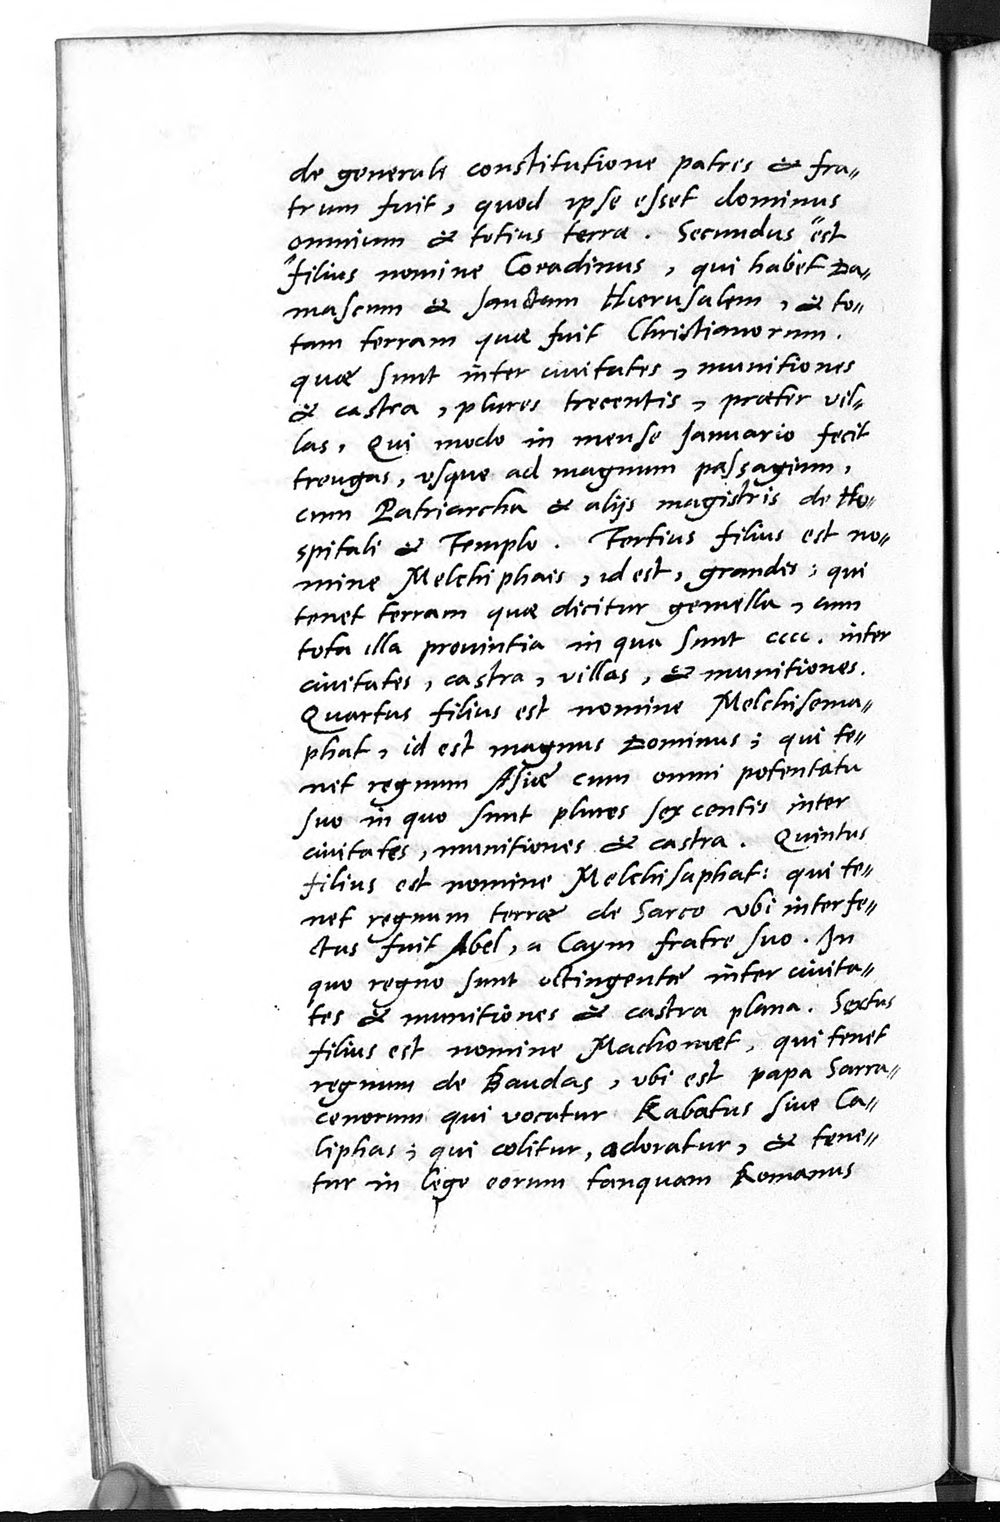 de generali constitutione patris & fra„
trum fuit, quod ipse esset dominus
omnium & totius terræ. Secundus "est
"filius nomine Coradinus, qui habet Da„
mascum & sanctam Hierusalem, & to„
tam terram quæ fuit Christianorum.
quæ sunt inter ciuitates, munitiones
& castra, plures trecentis, præter vil„
las, Qui modo in mense Januario fecit
treugas, vsque ad magnum passagium,
cum Patriarcha & alijs magistris de Ho„
spitali & Templo. Tertius filius est no„
mine Melchiphais, id est, grandis; qui
tenet terram quæ dicitur gemella, cum
tota illa prouintia in qua sunt cccc. inter
ciuitates, castra, villas, & munitiones.
Quartus filius est nomine Melchisema„
phat, id est magnus Dominus; qui te„
net regnum Asiæ cum omni potentatu
suo in quo sunt plures sex centis inter
ciuitates, munitiones & castra. Quintus
filius est nomine Melchisaphat: qui te„
net regnum terræ de Sarco vbi interfe„
ctus fuit Abel, a Caym fratre suo. In
quo regno sunt octingentæ inter ciuita„
tes & munitiones & castra plana. Sextus
filius est nomine Machomet, qui tenet
regnum de Baudas, vbi est papa Sarra„
cenorum qui vocatur Kabatus siue Ca„
liphas; qui colitur, adoratur, & tene„
tur in lege eorum tanquam Romanus